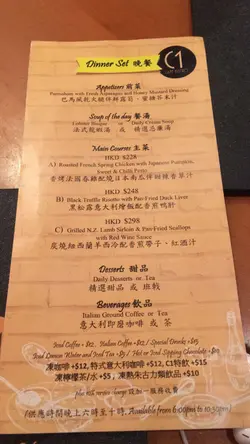 Dinner Set 晚餐
C1
Appetizers 前菜
Parmaham with Fresh Asparagus and Honey Mustard Dressing
巴馬風乾火腿伴鮮露筍，蜜糖芥末汁
Soup of the day 餐湯
Lobster Bisque or Daily Cream Soup
法式龍蝦湯 或 精選忌廉湯
Main Courses 主菜
HKD $228
A) Roasted French Spring Chicken with Japanese Pumpkin,
Sweet & Chilli Pesto
香烤法國春雞配燒日本南瓜伴甜辣香草汁
HKD $248
B) Black Truffle Risotto with Pan-Fried Duck Liver
黑松露意大利燴飯配香煎鴨肝
HKD $298
C) Grilled N.Z. Lamb Sirloin & Pan-Fried Scallops
with Red Wine Sauce
炭燒紐西蘭羊西冷配香煎帶子、紅酒汁
Desserts 甜品
Daily Desserts or Tea
精選甜品 或 班戟
Beverages 飲品
Italian Ground Coffee or Tea
意大利即磨咖啡 或 茶
Iced Coffee + $12, Italian Coffee + $12 / Special Drinks + $15
Iced Lemon Water and Iced Tea + $5 / Hot or Iced Sipping Chocolate + $10
凍咖啡 +$12, 特式意大利咖啡 +$12, C1特飲 +$15
凍檸檬茶/水 +$5 , 凍熱朱古力類飲品 +$10
plus 10% service charge 設加一服務收費
/供應時間晚上六時至十時, Available from 6:00pm to 10:30pm/